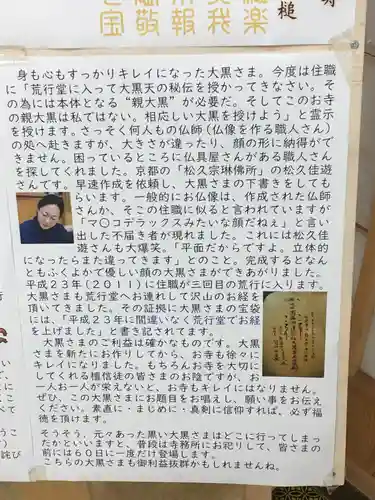 槌
身も心もすっかりキレイになった大黒さま。今度は住職
に「荒行堂に入って大黒天の秘伝を授かってきなさい。そ
の為には本体となる“親大黒”が必要だ。そしてこのお寺
の親大黒は私ではない。相応しい大黒を授けよう」と霊示
を授けます。さっそく何人もの仏師（仏像を作る職人さん）
の処へ赴きますが、大きさが違ったり、顔の形に納得がで
きません。困っているところに仏具屋さんがある職人さん
を探してくれました。京都の「松久宗琳佛所」の松久佳遊
さんです。早速作成を依頼し、大黒さまの下書きをしても
らいます。一般的にお仏像は、作成された仏師
さんか、そこの住職に似ると言われていますが
「マ〇コデラックスみたいな顔だねぇ」と言い
出した不届き者が現れました。これには松久佳
遊さんも大爆笑。「平面だからですよ。立体的
になったらまた違ってきます」とのこと。完成するとなん
ともふくよかで優しい顔の大黒さまができあがりました。
平成２３年（２０１１）に住職が三回目の荒行に入ります。
大黒さまも荒行堂へお連れして沢山のお経を
頂いてきました。その証拠に大黒さまの宝袋
には、「平成２３年に間違いなく荒行堂でお経
を上げました」と書き記されてます。
大黒さまのご利益は確かなものです。大黒
さまを新たにお作りしてから、お寺も徐々に
キレイになりました。もちろんお寺を大切に
してくれる檀信徒の皆さまのお陰ですが、お
一人お一人が栄えないと、お寺もキレイにはなりません。
ぜひ、この大黒さまにお題目をお唱えし、願い事をお伝え
ください。素直に・まじめに・真剣に信仰すれば、必ず福
徳を頂けます。
そうそう、元々あった黒い大黒さまはどこに行ってしまっ
たかといいますと、普段は寺務所にお祀りして、皆さまの
前には６０日に一度だけ登場します。
こちらの大黒さまも御利益抜群かもしれませんね。